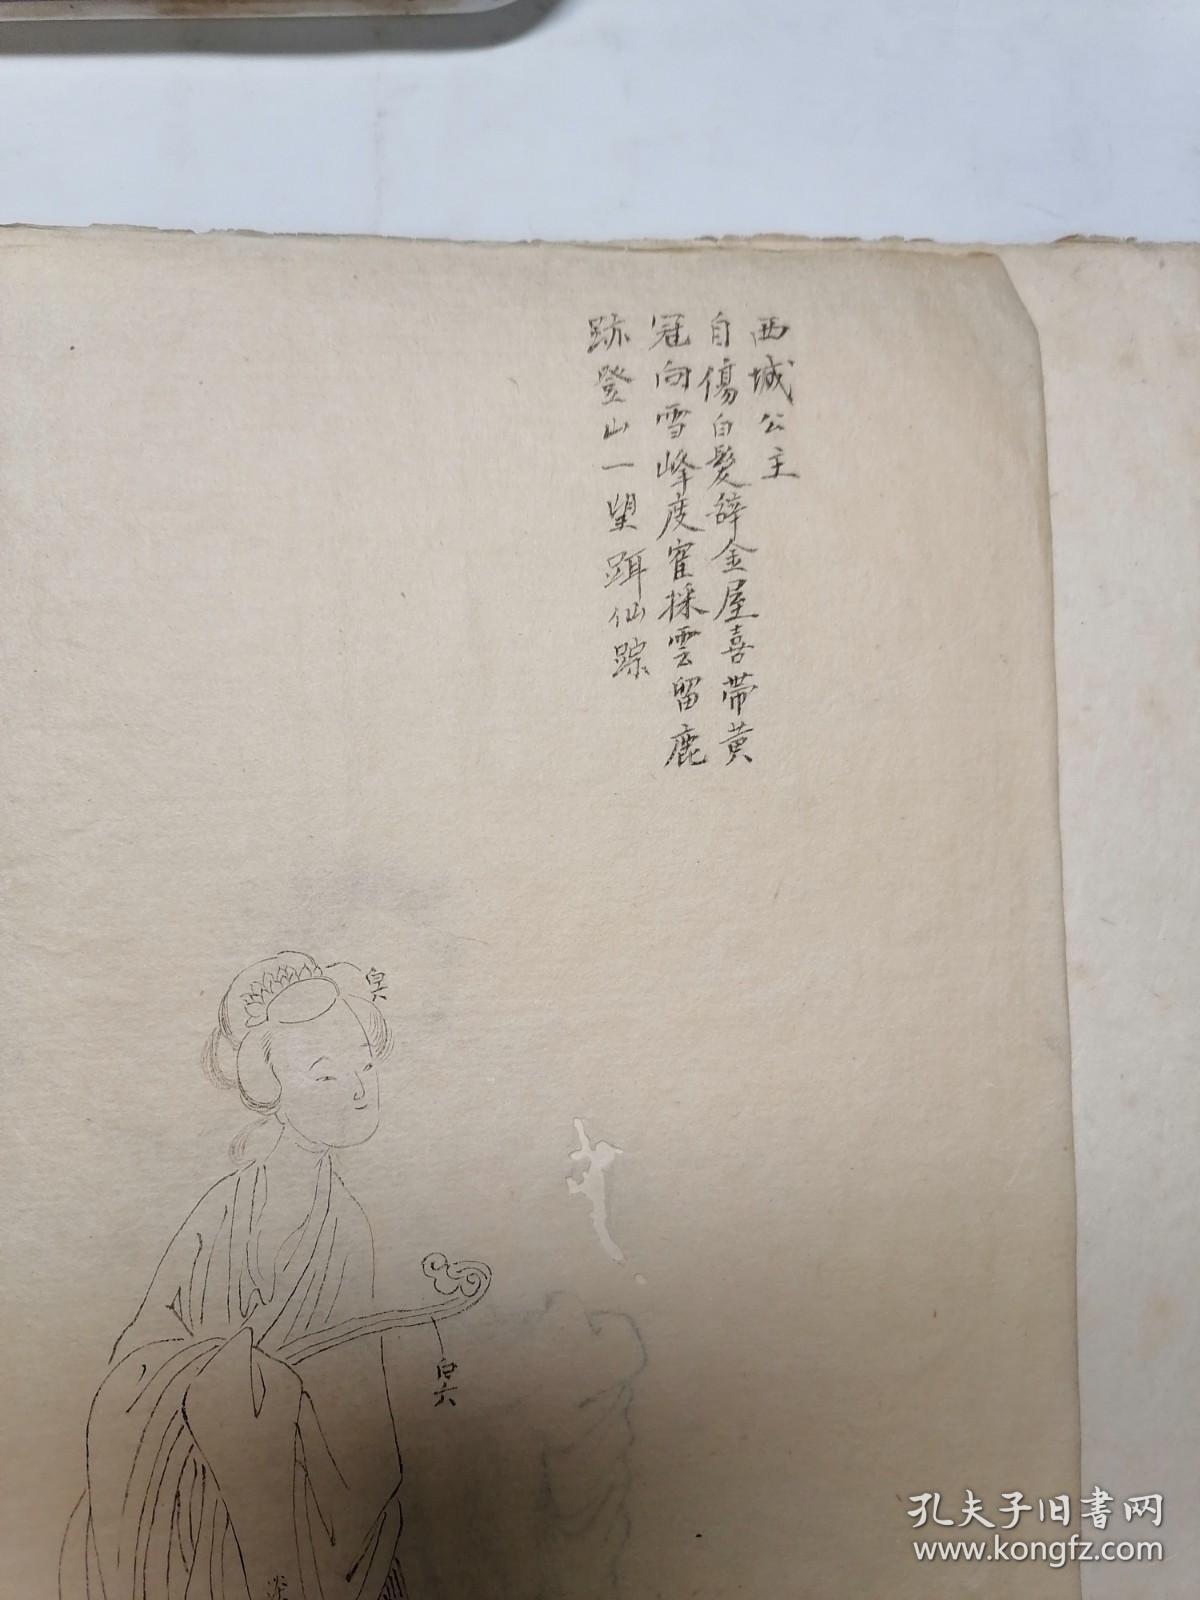 西城公主
自傷白髮辭金屋喜带黄
冠向雪峰度窅採雲留鹿
跡登山一望踇仙踪
白六
孔夫子旧书网
www.kongfz.com